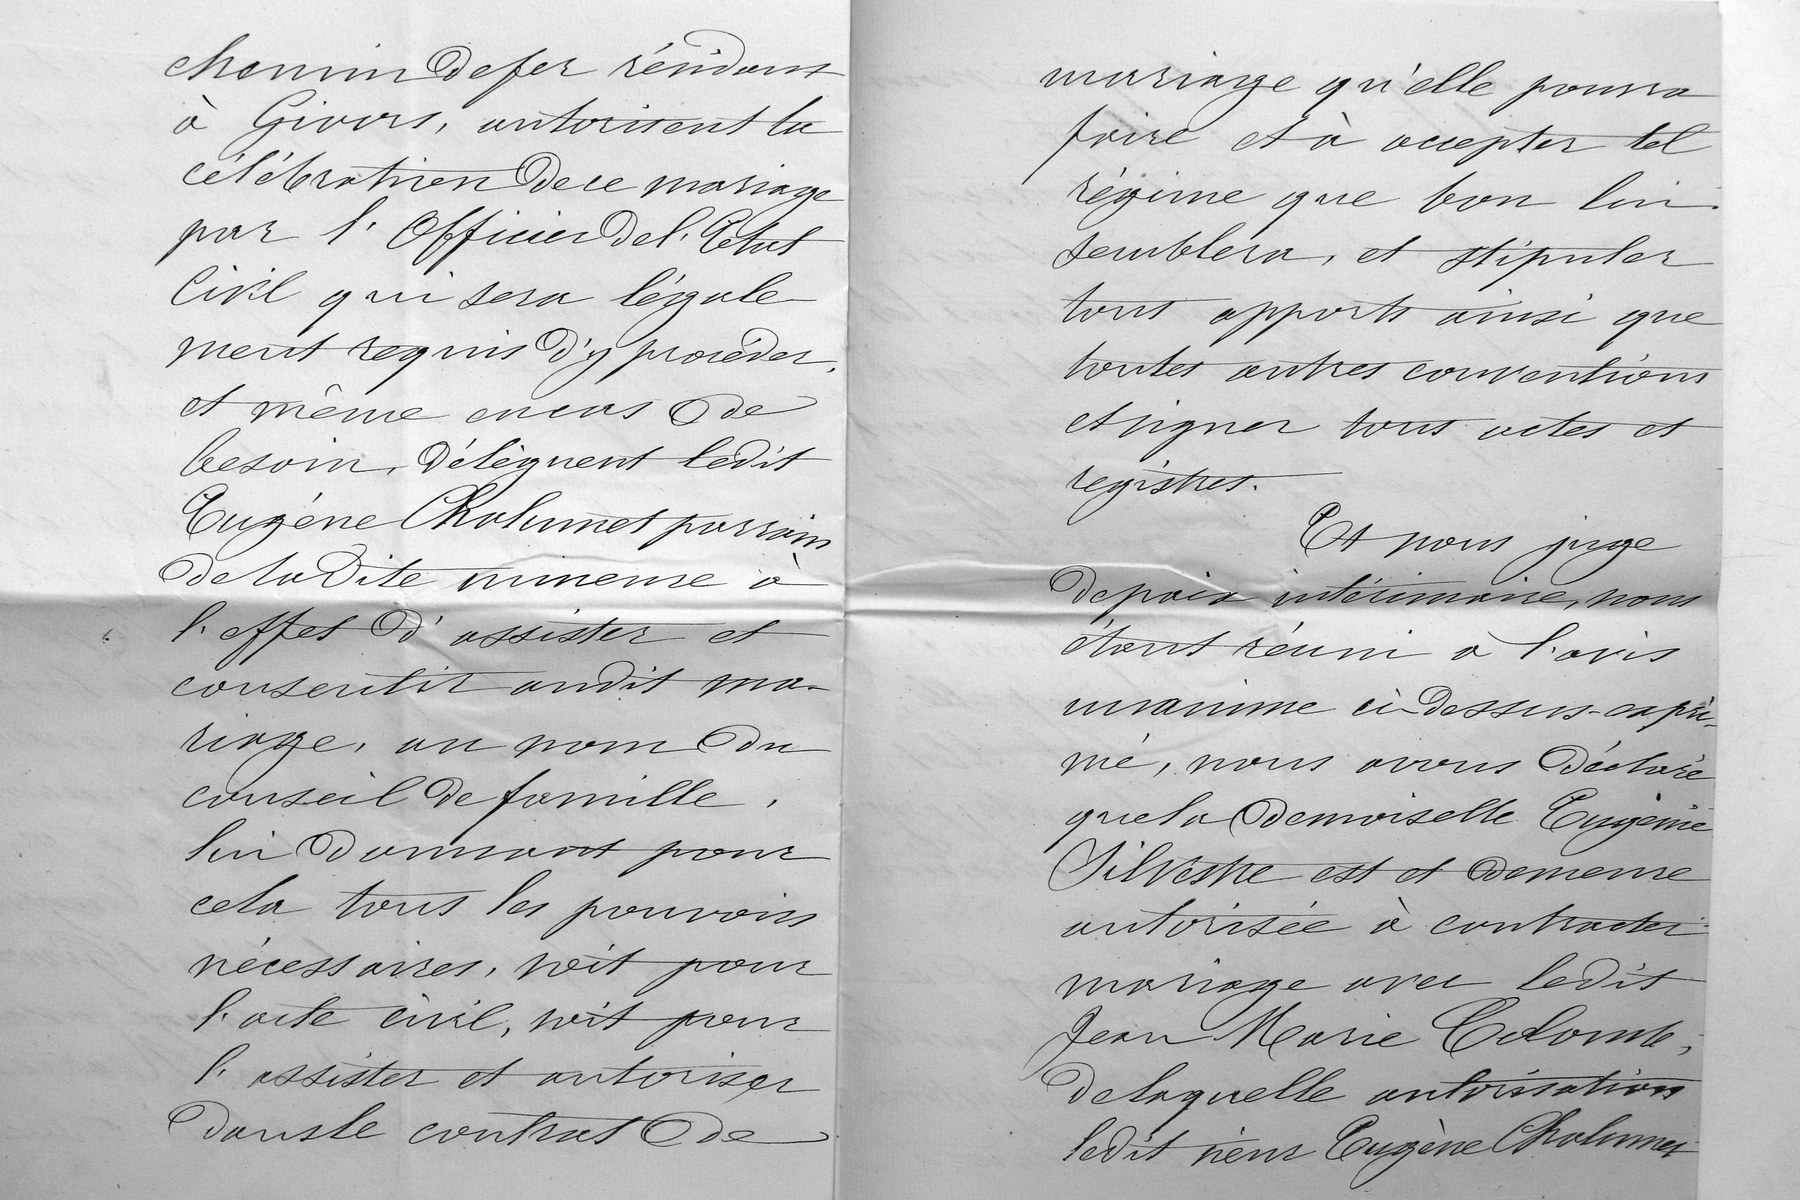 chemin de fer résidant
à Givors, autorisent la
célébration de ce mariage
par l'Officier de l'Etat
Civil qui sera légale-
ment requis d'y procéder,
et même en cas de
besoin, délèguent ledit
Eugène Chalumet parrain
de la dite mineure à
l'effet d'assister et
consentir audit ma-
riage, au nom du
conseil de famille,
lui donnant pour
cela tous les pouvoirs
nécessaires, soit pour
l'acte civil, soit pour
l'assister et autoriser
dans le contrat de
mariage qu'elle pourra
faire et à accepter tel
régime que bon lui
semblera, et stipuler
tous apports ainsi que
toutes autres conventions
et signer tous actes et
registres.
Et nous juge
de paix intérimaire, nous
étant réuni à l'avis
unanime ci-dessus-expri-
mé, nous avons déclaré
que la demoiselle Eugénie
Silvestre est et demeure
autorisée à contracter
mariage avec ledit
Jean Marie Colomb,
de laquelle autorisation
ledit sieur Eugène Chalumet